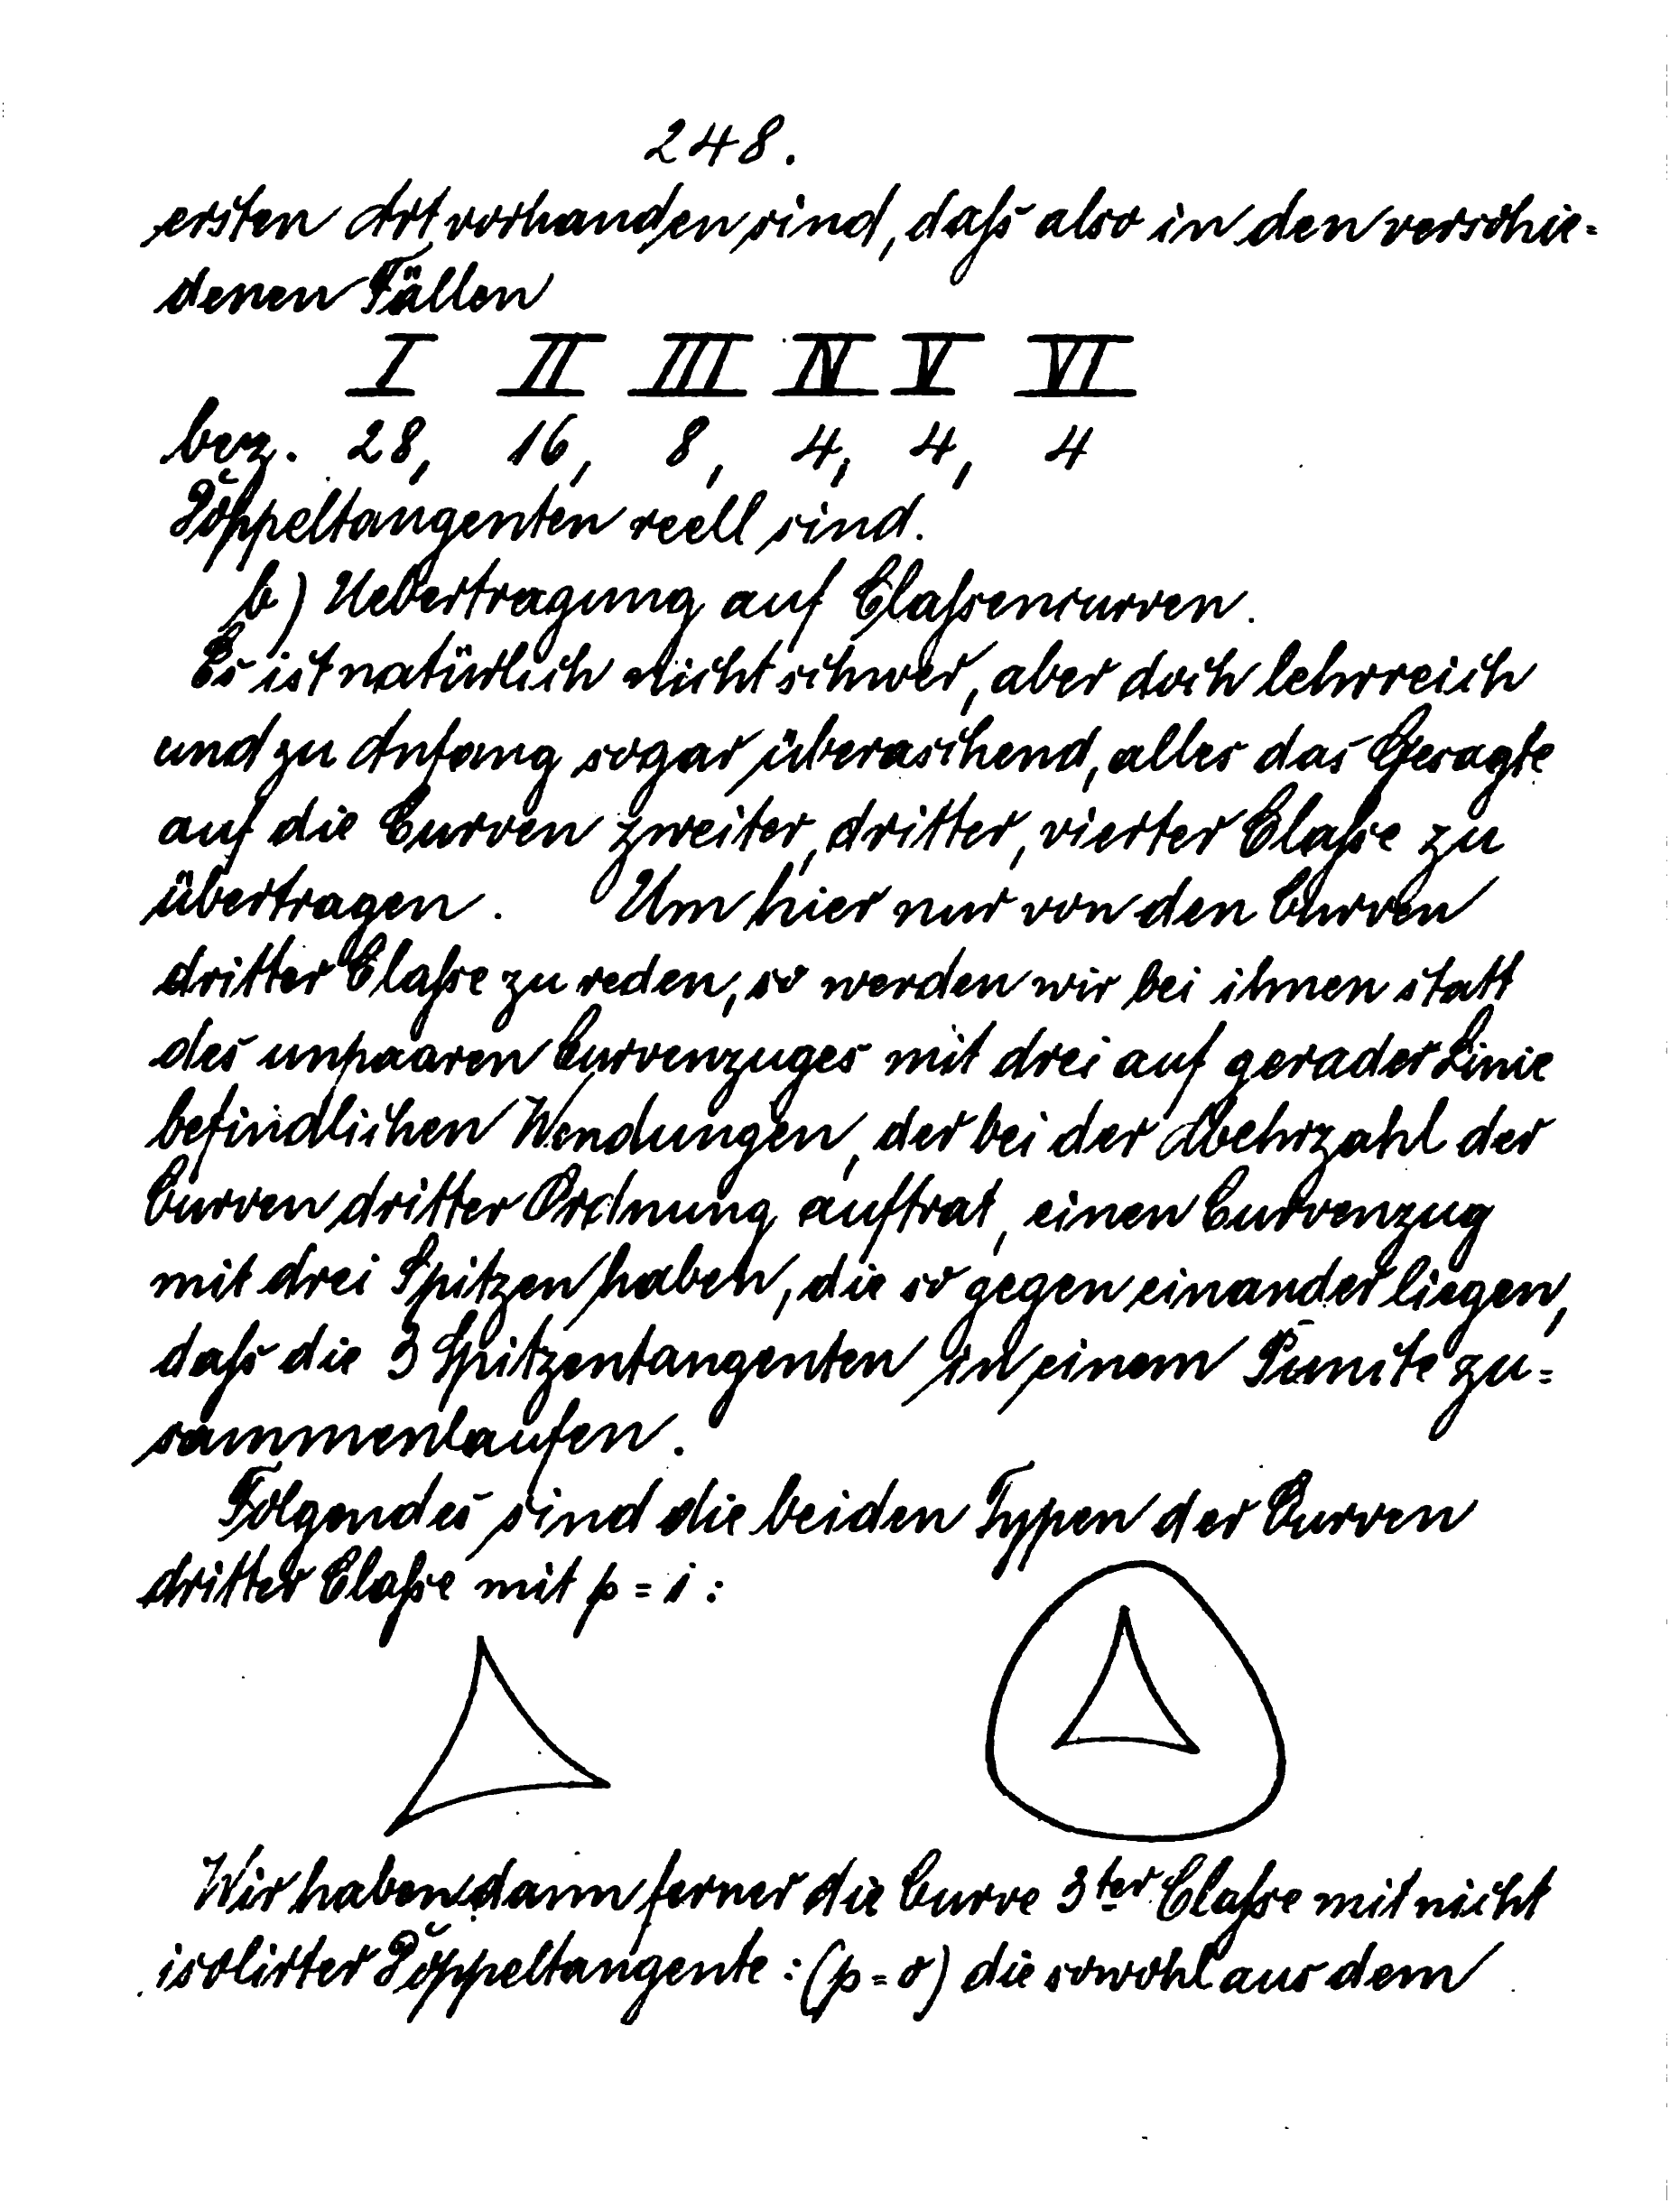 248.
ersten Art vorhanden sind, daſs also in den verschie=
denen Fällen
I II III IV V VI
bez. 28, 16, 8, 4, 4, 4
Doppeltangenten reell sind.
b) Uebertragung auf Claſsencurven.
Es ist natürlich nicht schwer, aber doch lehrreich
und zu Anfang sogar überaschend, alles das Gesagte
auf die Curven zweiter, dritter, vierter Claſse zu
übertragen. Um hier nur von den Curven
dritter Claſse zu reden, so werden wir bei ihnen statt
des unpaaren Curvenzuges mit drei auf gerader Linie
befindlichen Wendungen, der bei der Mehrzahl der
Curven dritter Ordnung auftrat, einen Curvenzug
mit drei Spitzen haben, die so gegen einander liegen,
daſs die 3 Spitzentangenten in einem Puncte zu=
sammenlaufen.
Folgendes sind die beiden Typen der Curven
dritter Claſse mit p = 1:
Wir haben dann ferner die Curve 3ter Claſse mit nicht
isolirter Doppeltangente: (p = 0) die sowohl aus dem